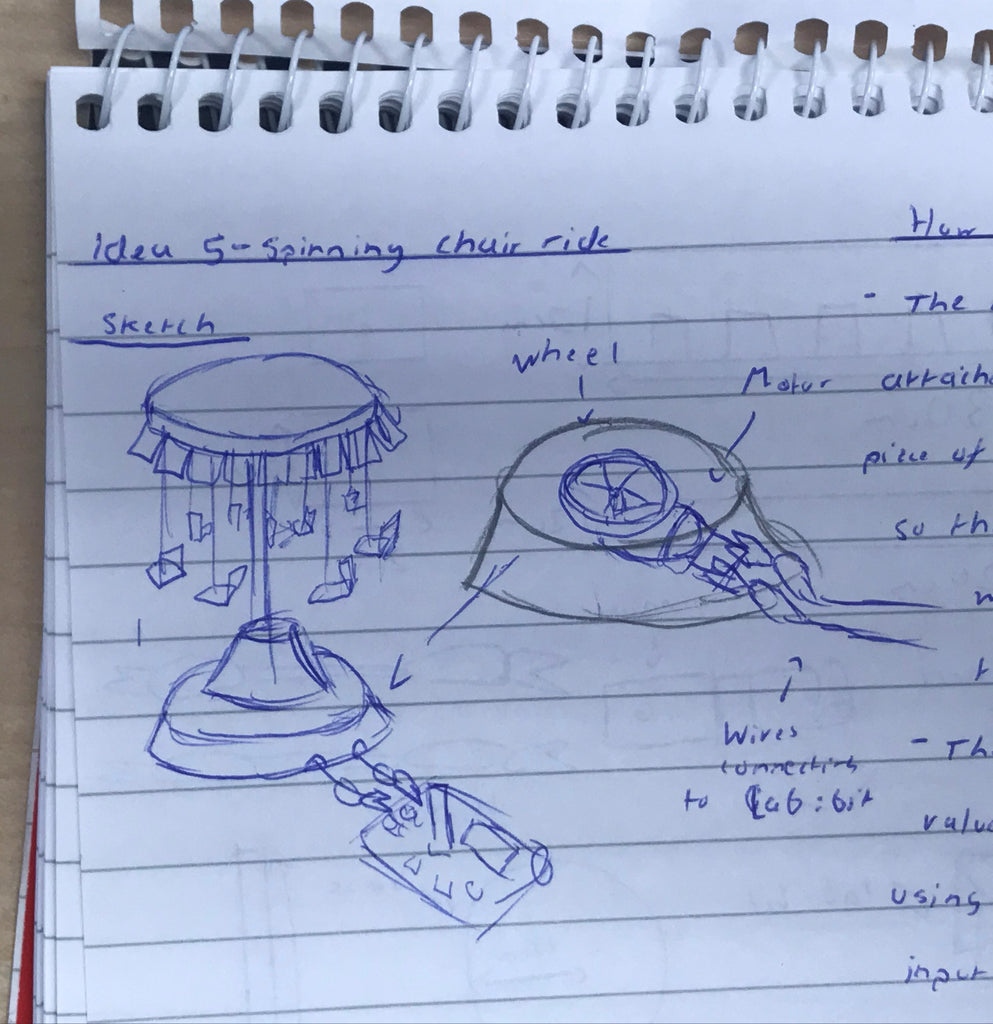 Idea 5 - Spinning chair ride
Sketch
Wheel
Motor
Wires
connecting
to Lab:bit
How
- The
attach
piece of
so th
- Th
valu
using
input